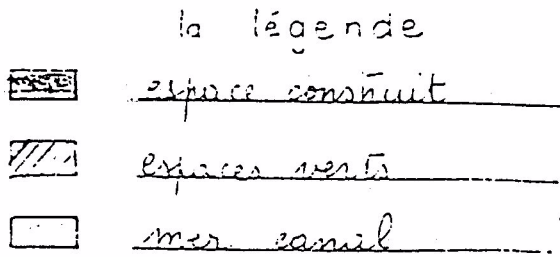 la légende
espace construit
espaces verts
mer canal